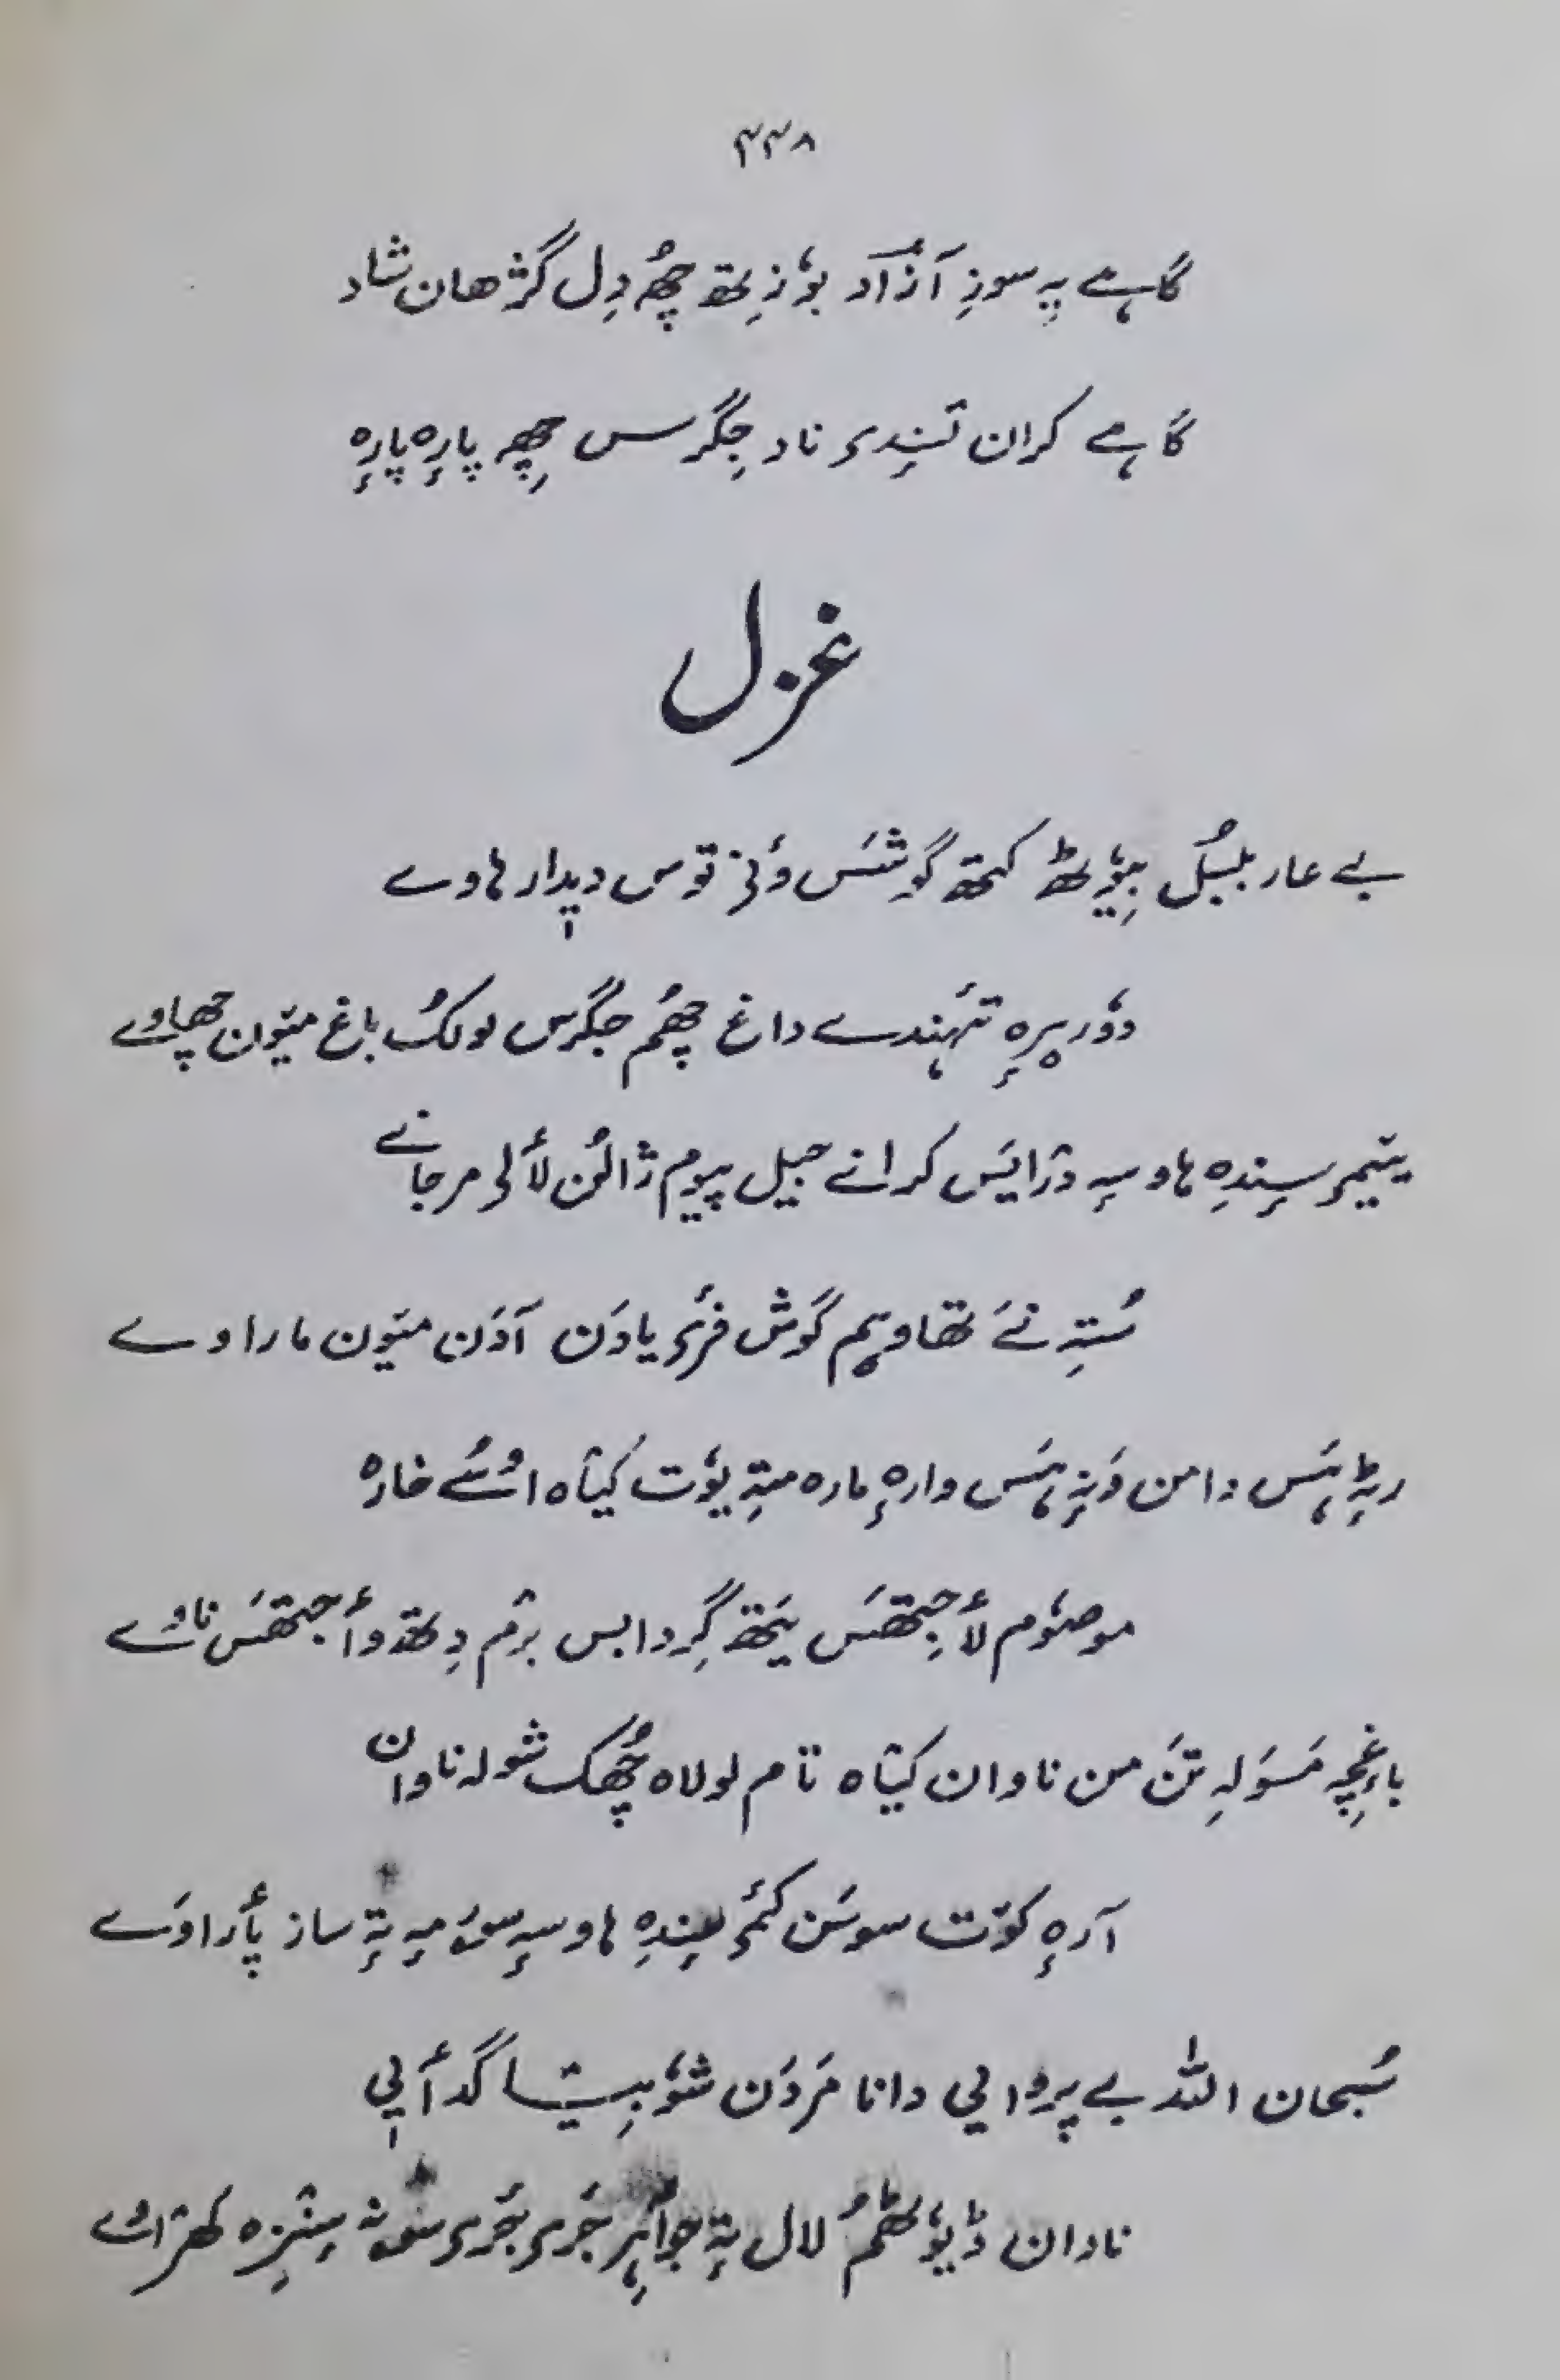 ۴۴۸
گاہے یہ سوزِ آزاد بوٗزِتھ چھُ دِل گژھان شاد
گاہے کران تٔہِنٛدی ناد جِگرس چھِ پارٕہ پارٕہ
غزل
بے عار بلبُل بیوٗٹھ کتھ گوشَس ؤنۍ توس دیٖدار ہاوے
دوٗر یِرٕہ تٔہنٛدے داغ چھُم جگرس لولُک باغ میٛون چھاوے
یَنٔبرِ سٕندِہ ہاوسہٕ دْرایَس کرانے جیل پیوم ژالُن لٲلۍ مرجانے
سُتہِ نَے تھاویم گوش فرٔیادَن آدَن میٛون ماراوے
رٹہٕ ہَس دامن وَنہٕ ہَس وارٕہ مارہ متہِ یوٗت کیٛاہ اوٚسُے خارہ
موصوٗم لٲجِتھَس یَتھ گِردابس برٛم دِتھ وٲجتھَس ناوے
باغچہِ مَسوَلہِ تَن من ناوان کیٛاہ تام لولاہ چھُک شولہ ناوان
آرٕہ کوٚت سوسَن کمۍ سٕندِہ ہاوسہٕ سۅے میہِ تہٕ ساز پٲراوَے
سُبحان اللہ بے پروایی دانا مَردَن شوٗبہِیا گدٲیی
نادان ڈیوٗٹھُم لال تہٕ جواہِر جَری جَری سۅنہٕ سٕنٛزہ کھراوے